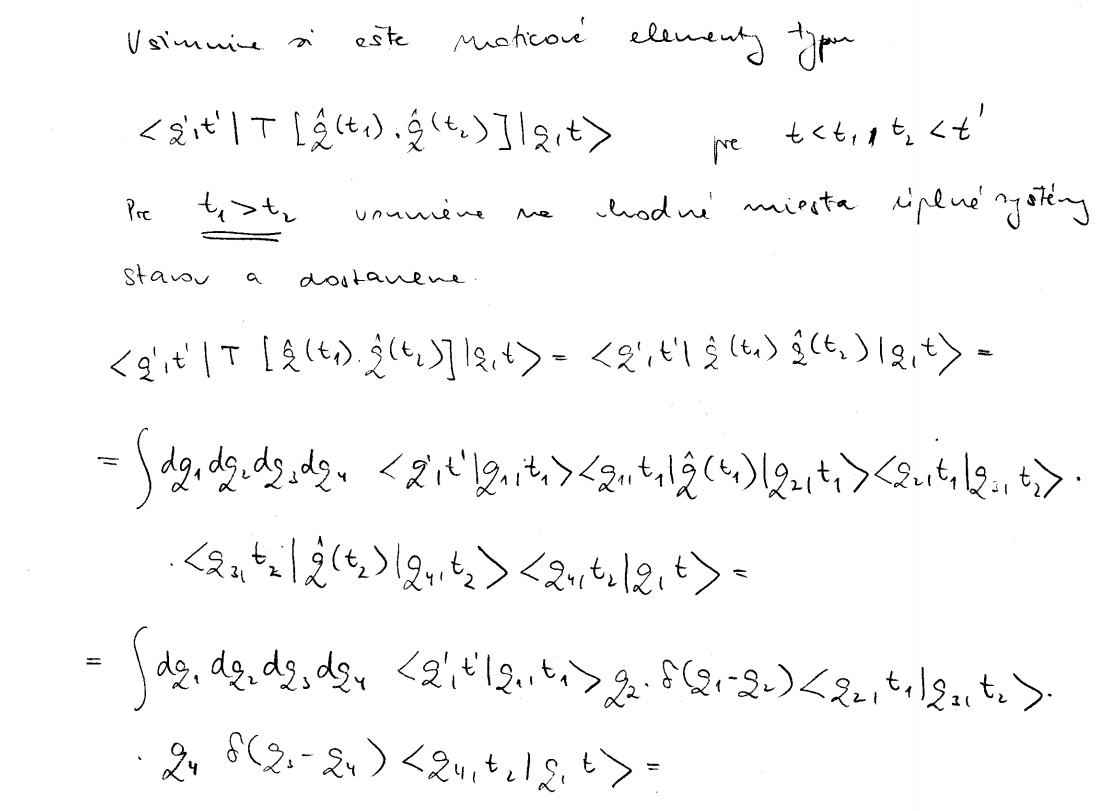 Vsimnime si ešte maticové elementy typu
<q',t'|T[q̂(t₁).q̂(t₂)]|q,t> pre t<t₁,t₂<t'
Pre t₁>t₂ vsunieme na vhodné miesta úplné systémy
stavov a dostaneme.
<q',t'|T[q̂(t₁).q̂(t₂)]|q,t> = <q',t'|q̂(t₁)q̂(t₂)|q,t> =
= ∫dq₁dq₂dq₃dq₄ <q',t'|q₁,t₁><q₁,t₁|q̂(t₁)|q₂,t₁><q₂,t₁|q₃,t₂>.
.<q₃,t₂|q̂(t₂)|q₄,t₂><q₄,t₂|q,t> =
= ∫dq₁dq₂dq₃dq₄ <q',t'|q₁,t₁> q₂.δ(q₁-q₂)<q₂,t₁|q₃,t₂>.
. q₄ δ(q₃-q₄)<q₄,t₂|q,t> =